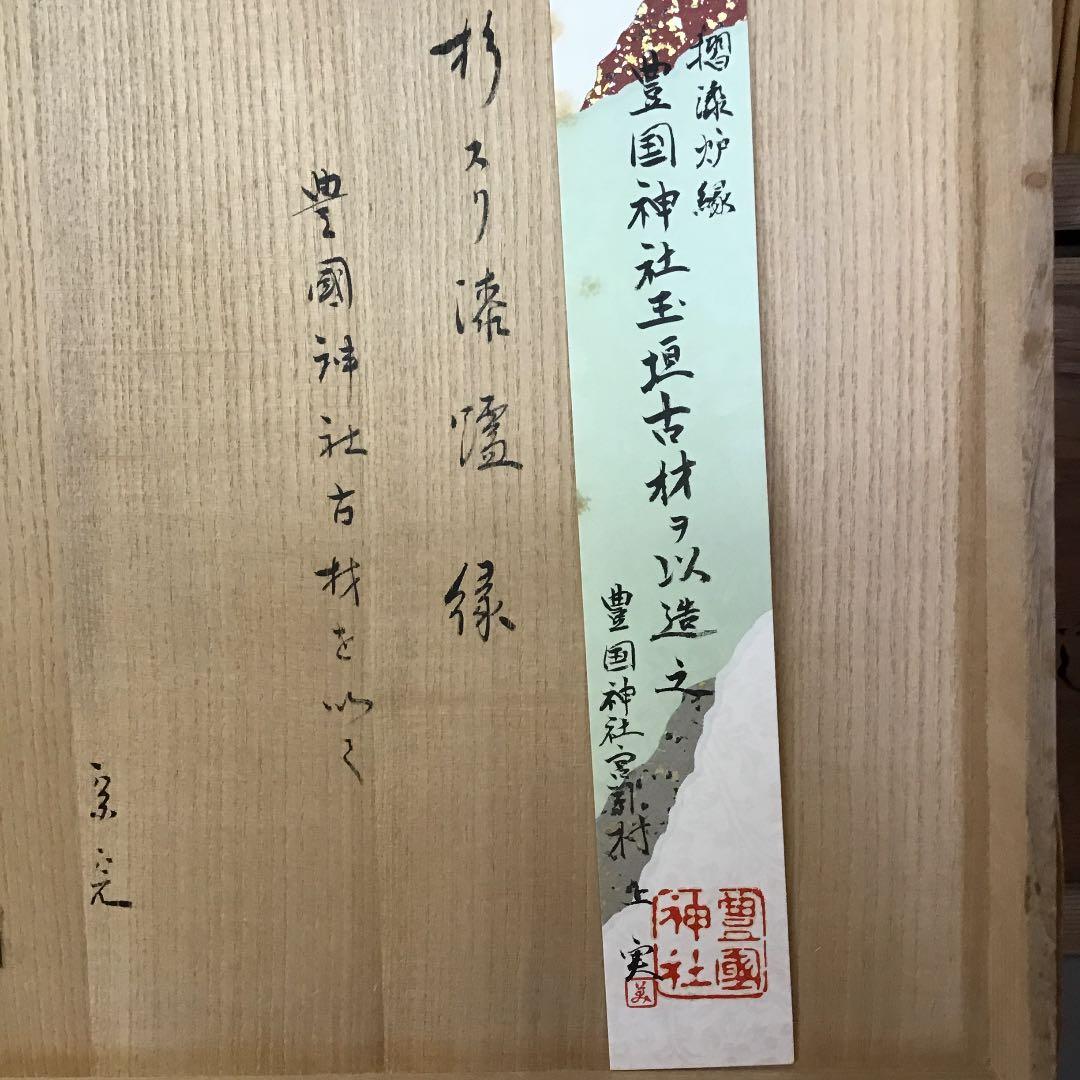 摺漆炉縁
豊国神社玉垣古材ヲ以造之
豊国神社宮司村上 実
豐國神社
杉スリ漆爐縁
豊國神社古材を以て
宗完